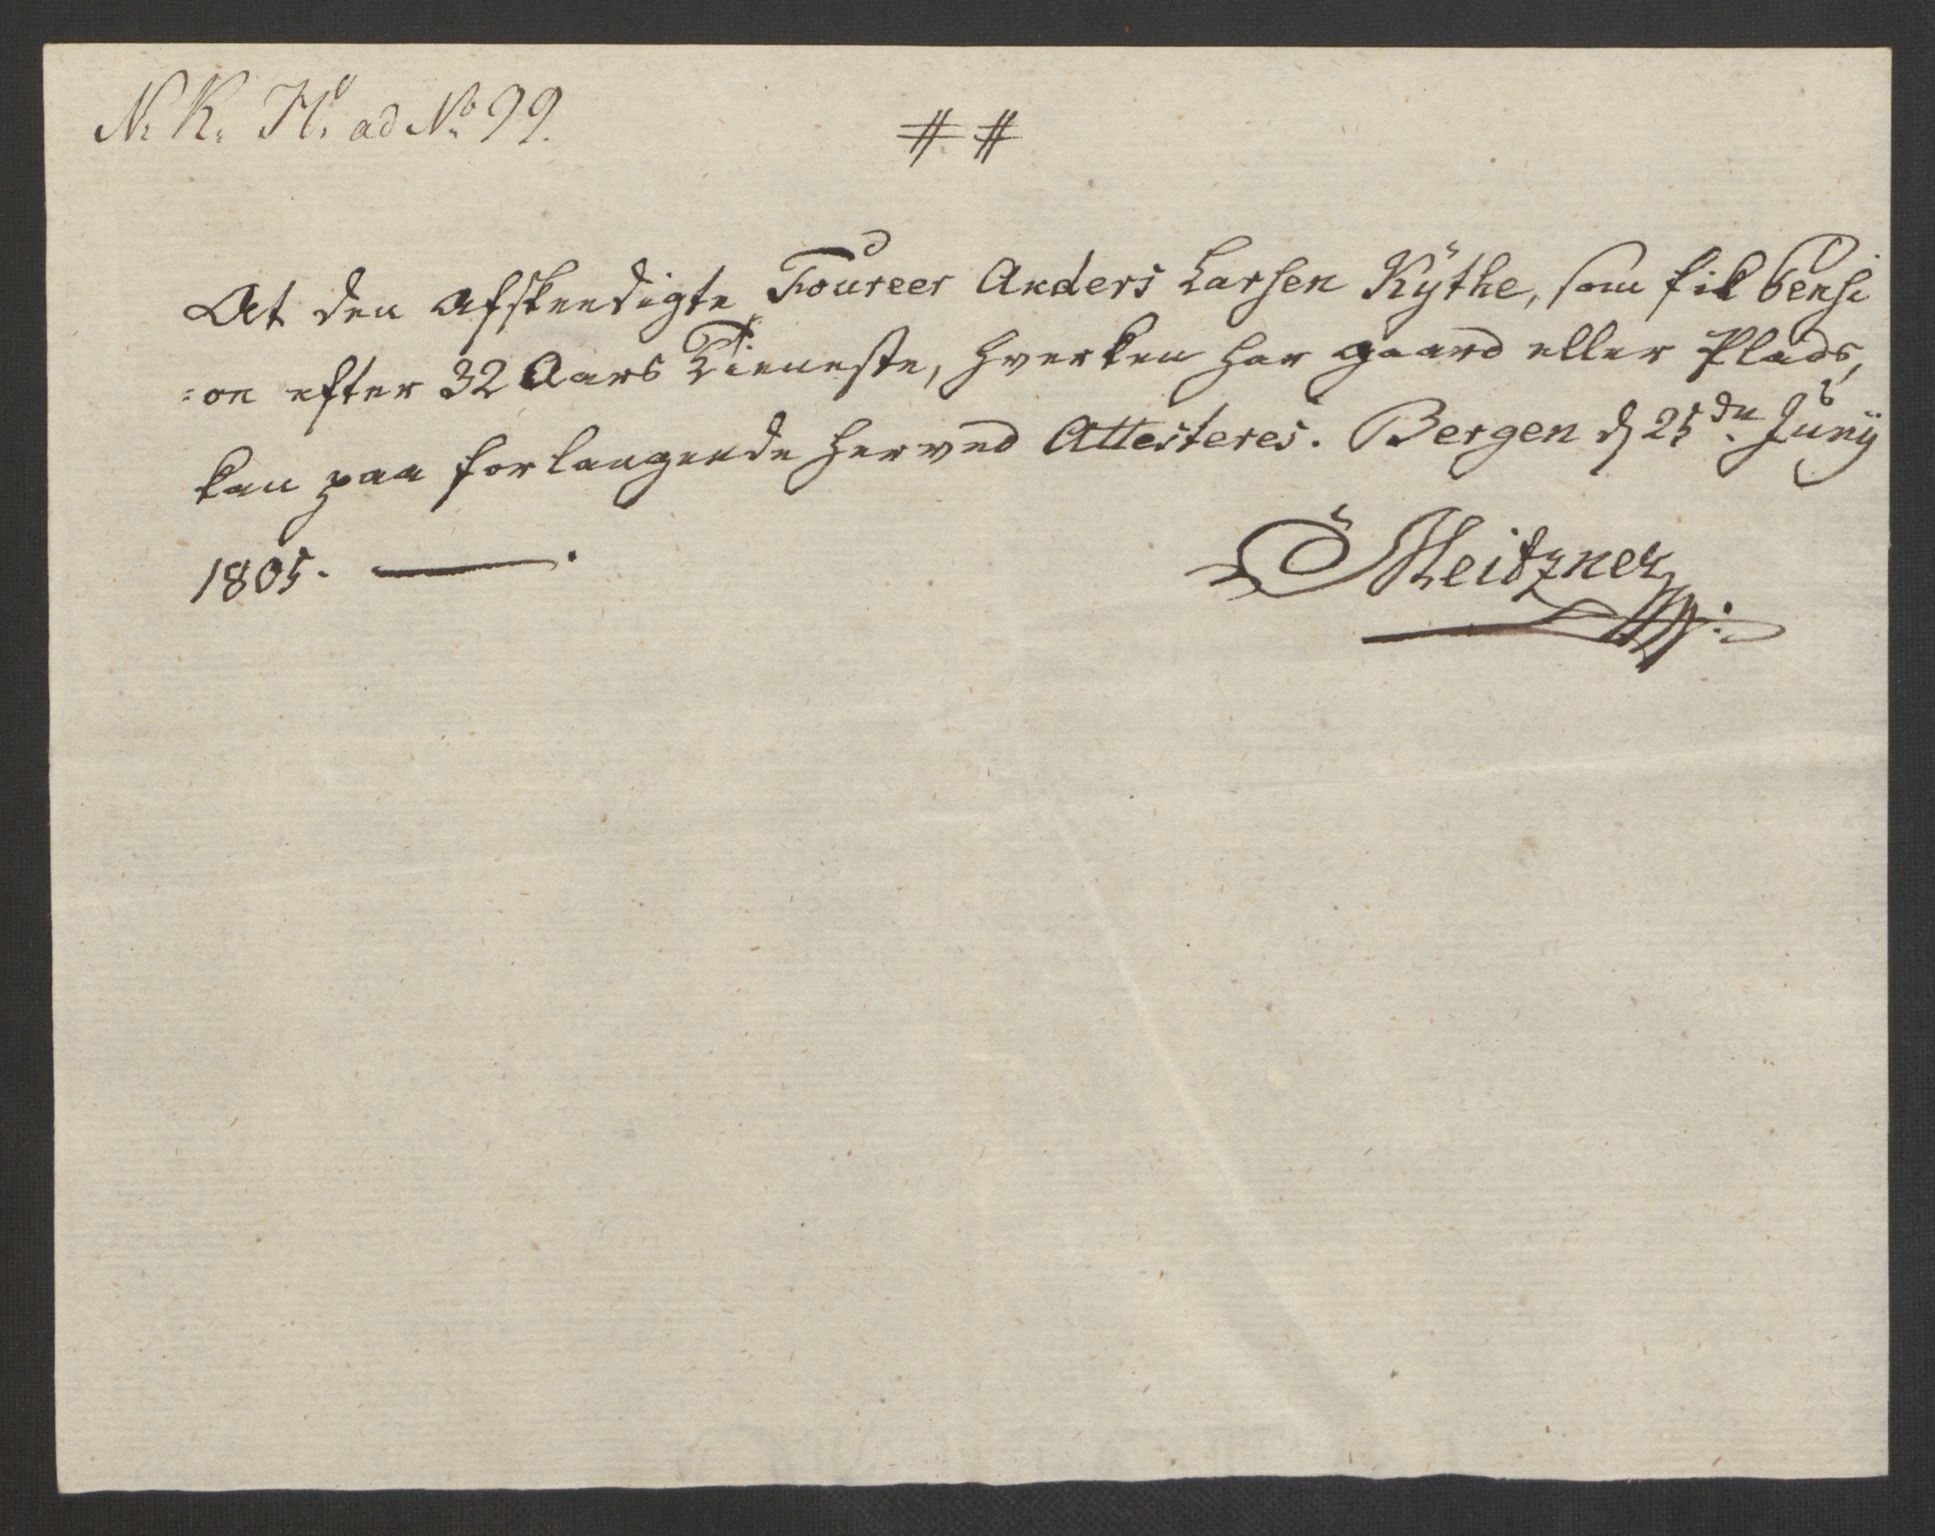 N. K. H. ad No 99.
# #
At den afskeedigte Foureer Anders Larsen Kÿthe, som fik Pensi
=on efter 32 Aars Tieneste, hverken har gaard eller Plads,
kan paa forlangende herved Attesteres. Bergen d 25de Junÿ
1805. —— .
Meitzner